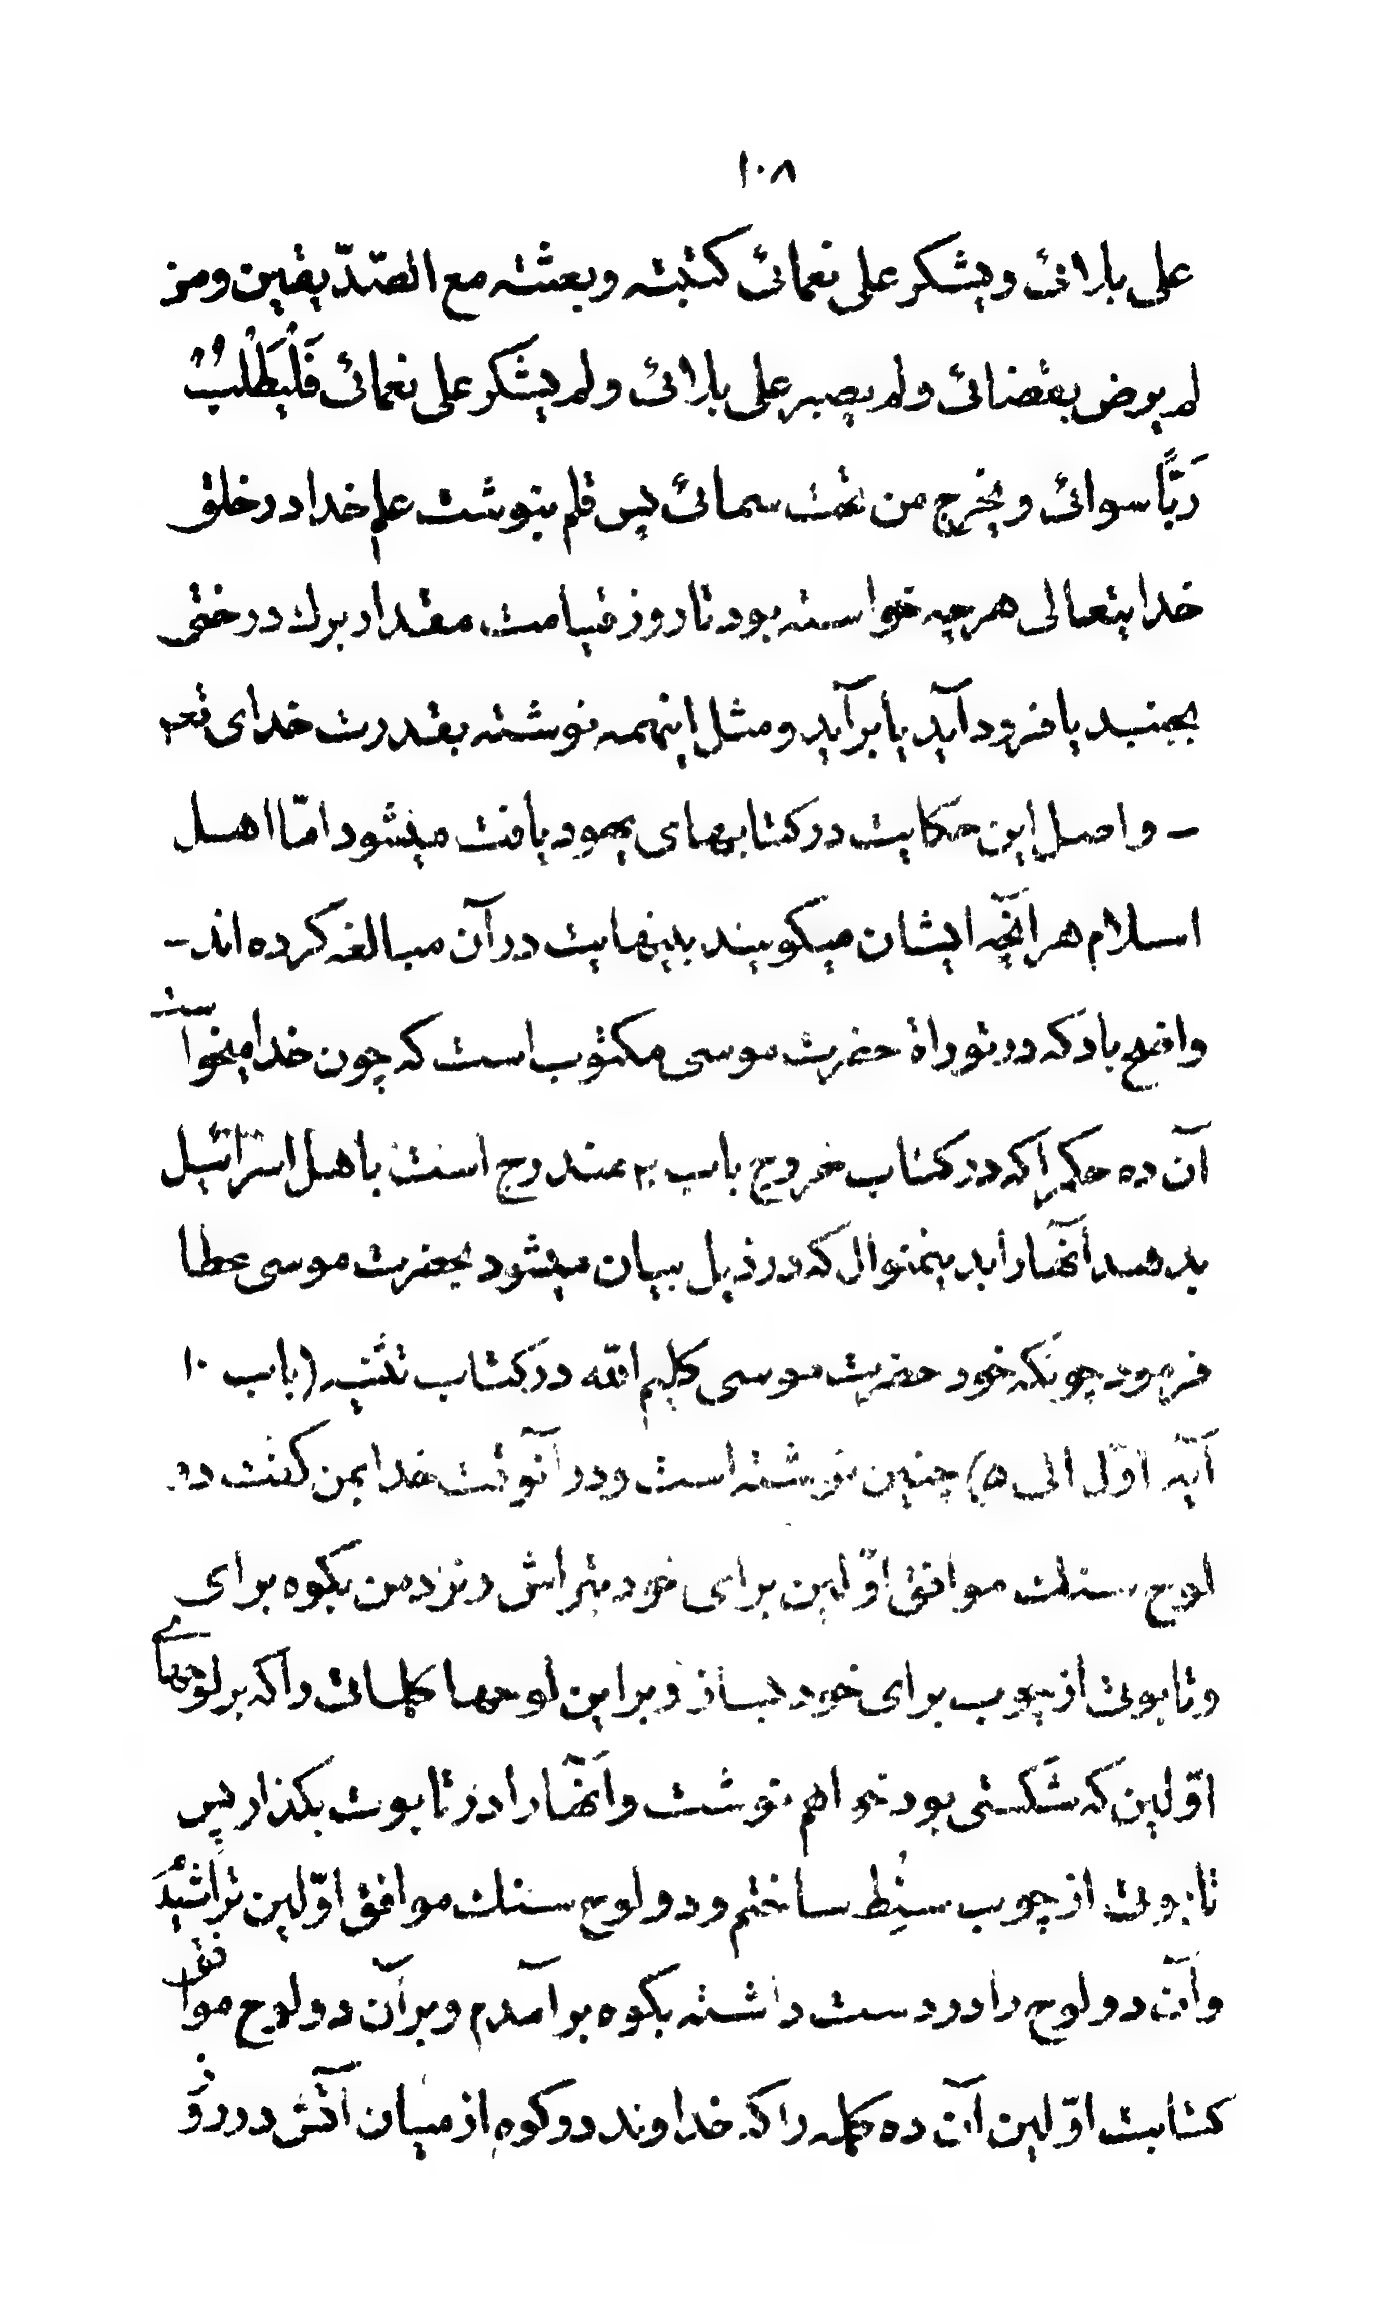 ۱۰۸
علی بلائی ویشکر علی نعمائی کتبته وبعثته مع الصّدّیقین ومن
لم یرض بقضائی ولم یصبر علی بلائی ولم یشکر علی نعمائی فَلْیَطْلُبْ
رَبًّا سوائی ویخرج من تحت سمائی پس قلم بنوشت علم خدا در خلق
خدایتعالی هرچه خواسته بود تا روز قیامت مقدار برك درختی
بجنبد یا فرود آید یا برآید ومثل اینهمه نوشته بقدرت خدای تعم
– واصل این حکایت در کتابهای یهود یافت میشود امّا اهل
اسلام هر آنچه ایشان میکویند بینهایت در آن مبالغه کرده اند –
واضح باد که در توراة حضرت موسی مکتوب است که چون خدا میخواست
آن ده حکم را که در کتاب خروج باب ۲۰ مندرج است باهل اسرائیل
بدهد آنها را بدینمنوال که در ذیل بیان میشود بحضرت موسی عطا
فرمود چونکه خود حضرت موسی کلیم الله در کتاب تثنیه (باب ۱۰
آیه اوّل الی ۵) چنین نوشته است ودر آنوقت خدا بمن کفت دو
لوح سنك موافق اوّلین برای خود بتراش ونزد من بکوه برای
وتابوتی از چوب برای خود بساز وبر این لوحها کلماتی را که بر لوحهای
اوّلین که شکستی بود خواهم نوشت وآنها را در تابوت بکذار پس
تابوتی از چوب سنِط ساختم ودو لوح سنك موافق اوّلین تراشیدَم
وآن دو لوح را در دست داشته بکوه برآمدم وبرآن دو لوح موافق
کتابت اوّلین آن ده کلمه را که خداوند در کوه از میان آتش در روز